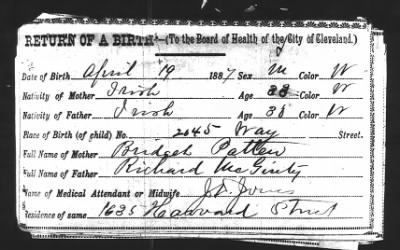 RETURN OF A BIRTH (To the Board of Health of the City of Cleveland.)
Date of Birth April 19 1887. Sex M Color W
Nativity of Mother Irish Age 38 Color W
Nativity of Father Irish Age 38 Color W
Race of Birth (of child) No. 2045 Way Street.
Full Name of Mother Bridget Patten
Full Name of Father Richard McGinty
Name of Medical Attendant or Midwife J. D. Jones
Residence of same 1635 Harvard Street